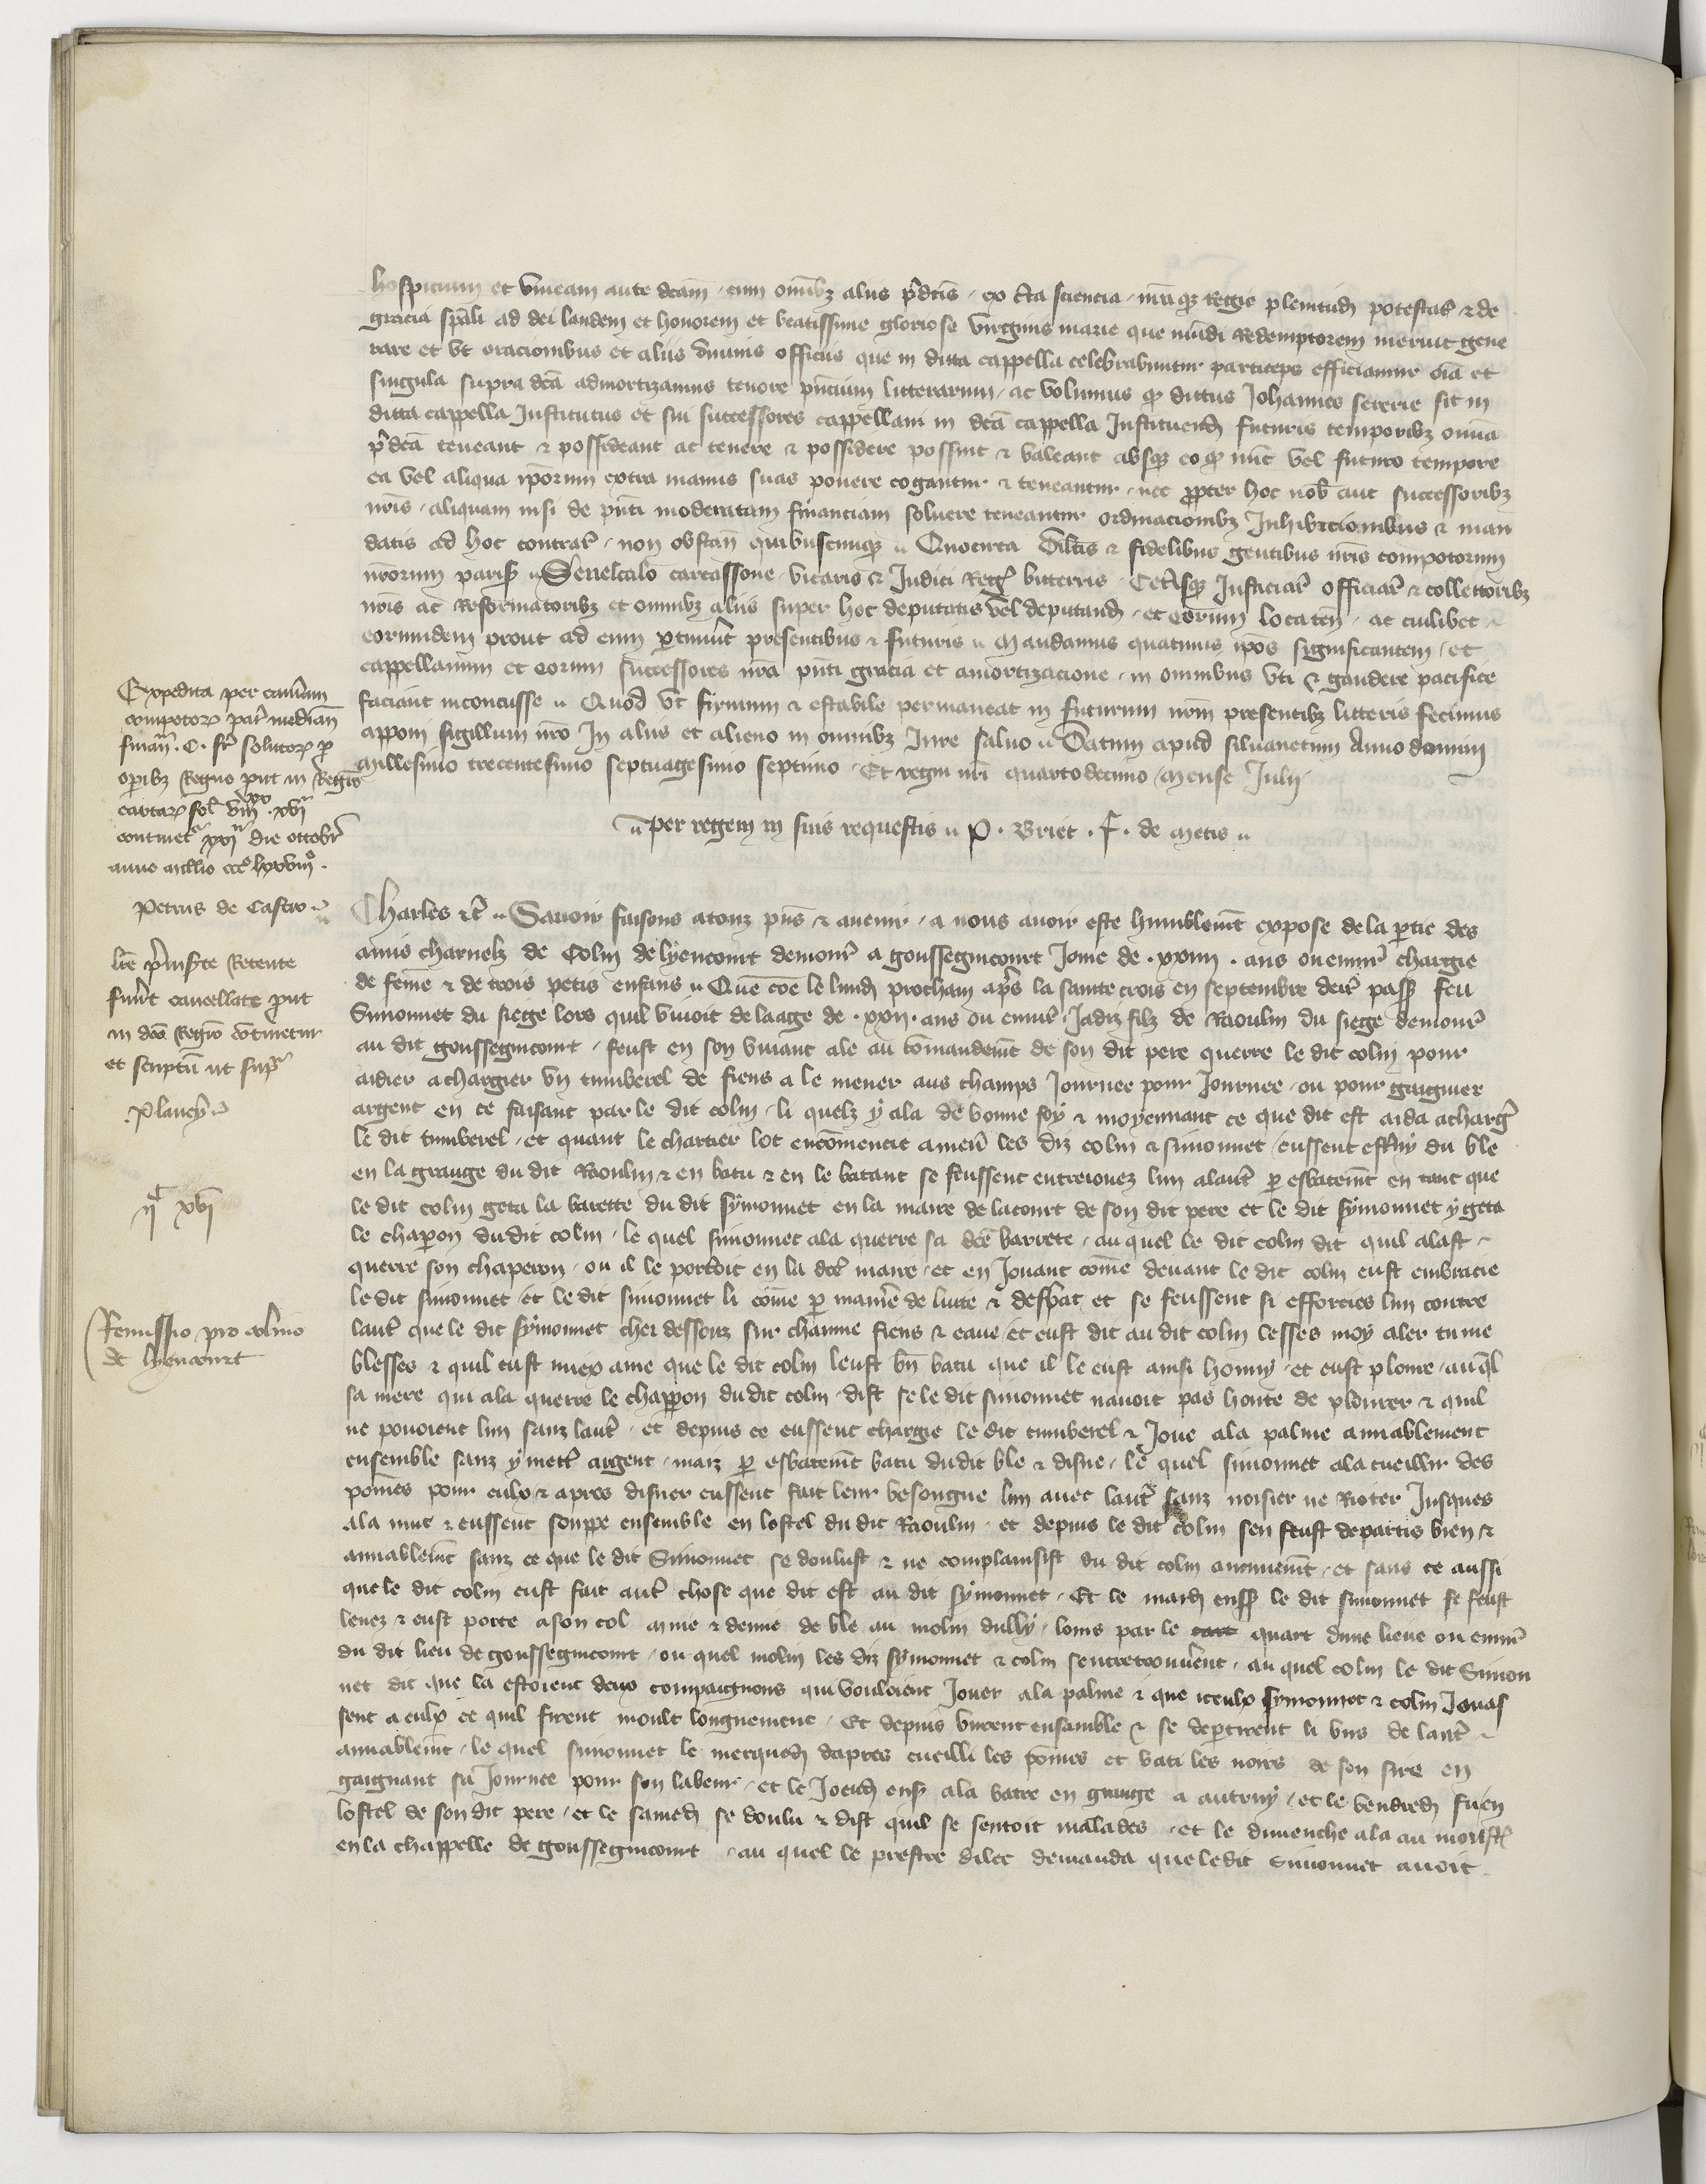 hospicium et vineam ante dcam cum omnibz aliis pdcis ex cta sciencia nraqz Regie plenitud potestat et de
gracia spali ad dei laudem et honorem et beatissime gloriose virginis marie que mundi Redemptorem meruit gene
rare et vt oracionibus et aliis divinis officiis que in dicta cappella celebrabuntur particeps efficiamur oia et
singula supra dca admortizamus tenore pncium litterarum ac volumus qd dictus Johannes sit in
dicta cappella Institutus et sui successores cappellani in dca cappella Instituend futuris temporibz omnia
pdca teneant et possideant ac tenere et possidere possint et valeant absqz eo qd nunc vel futuro tempore
ea vel aliqua iporum extra manus suas ponere cogantur et teneantur nec propter hoc nob aut successoribz
nris aliquam nisi de pnti moderatam financiam soluere teneantur ordinacionibz Inhibicionibus et man
datis ad hoc contrar non obstan quibuscumqz Quocirca dilcis et fidelibus gentibus nris compotorum
nrorum paris Senescalo carcassone vicario et Judici Reg bitterris Ceterisqz Justiciar officiar et collectoribz
nris ac Reformatoribz et omnibz aliis super hoc deputatis vel deputand et eorum locaten ac cuilibet
eorumdem prout ad eum ptinuit presentibus et futuris Mandamus quatinus ipos significantem et
cappellanum et eorum successores nra pnti gracia et amortizacione in omnibus vti et gaudere pacifice
faciant inconcusse Quod vt firmum et estabile permaneat in futurum nrm presentibz litteris fecimus
apponi sigillum nro In aliis et alieno in omnibz Jure saluo Datum apud siluanetum Anno domini
Millesimo trecentesimo septuagesimo septimo Et regni nri quartodecimo mense Julii
per regem in suis requestis P. Briet . F. de Metis
Expedita per camam
compotor par median
finan . C. fr solutor p
opibz Regno put in Regro
cartar fol
continet xxi die octobr
anno millio ccc lxxviii
Petrus de Castro
lre prinscte Retente
fuert cancellate put
in dco Regro continetur
et scriptu ut supr
Plancy
Charles etc Sauoir faisons atouz pns et auenir a nous auoir este humblemt expose dela partie des
amis charnelz de Colin de lyencourt demour a goussegnicourt Jone de . xxiiii . ans ou enuir chargie
de feme et de trois petis enfans Que coe le lund prochain apres la sainte crois en septembre derr pass feu
Simonnet du siege lors quil viuoit de laage de . xxii . ans ou enuir Jadiz filz de Raoulin du siege demour
au dit goussegnicourt feust en son viuant ale au comandemt de son dit pere querre le dit colin pour
aidier a chargier vn tumberel de fiens a le mener aus champs Journee pour Journee ou pour gaignier
argent en ce faisant par le dit colin li quelz y ala de bonne foy et moyennant ce que dit est aida a charg
le dit tumberel et quant le chartier lot encomencie amen les diz colin et simonnet eussent du ble
en la grange du dit Raoulin et en batu et en le batant se feussent entreiouez lun alautr p esbatemt en tant que
le dit colin geta la barette du dit symonnet en la maire de lacourt de son dit pere et le dit symonnet y geta
le chaperon du dit colin le quel simonnet ala querre sa dce barrete au quel le dit colin dit quil alast
querre son chaperon ou il le portoit en la dce maire et en Jouant come deuant le dit colin eust embracie
le dit simonnet et le dit simonnet li come p maniere de luite et desbat et se feussent si efforcies lun contre
lautr que le dit symonnet chei dessouz sur fiens et eaue et eust dit au dit colin lesses moy aler tu me
blesses et quil eust miex ame que le dit colin leust bn batu que il le eust ainsi honny et eust ploure auql
sa mere qui ala querre le chapperon du dit colin dist se le dit simonnet nauoit pas honte de plourer et quil
ne pouoient lun sanz lautr et depuis ce eussent chargie le dit tumberel et Joue ala palme amiablement
ensemble sanz y mettr argent maiz p esbatemt batu du dit ble et disne le quel simonnet ala cueillir des
pomes pour eulx et apres disner eussent fait leur besongne lun auec lautr sanz noisier ne Rioter Jusques
ala nuit et eussent souppe ensemble en lostel du dit Raoulin et depuis le dit colin sen feust departis bien et
amiablemt sanz ce que le dit Simonnet se doulust et ne complainsist du dit colin aucunemt et sans ce aussi
que le dit colin eust fait autr chose que dit est au dit symonnet Et le mard enss le dit simonnet se feust
leuez et eust porte a son col mine et demie de ble au molin dully loins par le quart dune lieue ou enuir
du dit lieu de goussegnicourt ou quel molin les diz symonnet et colin sentretrouuerent au quel colin le dit Simon
net dit que la estoient deux compaignons qui vouloient Jouer ala palme et que iceulx symonnet et colin Jouas
sent a eulx ce quil firent moult longuement Et depuis burent ensamble et se departirent li uns de lautr
amiablemt le quel simonnet le merqued dapres cueilli les pomes et bati les noires de son sire en
gaignant sa Journee pour son labeur et le Joeud ens ala batre en grange a autruy et le vendred fu en
lostel de son dit pere et le samed se doulu et dist quil se sentoit malades et le dimenche ala au
en la chappelle de goussegnicourt au quel le prestre dilec demanda que le dit simonnet auoit
Remissio pro colino
de lyencourt